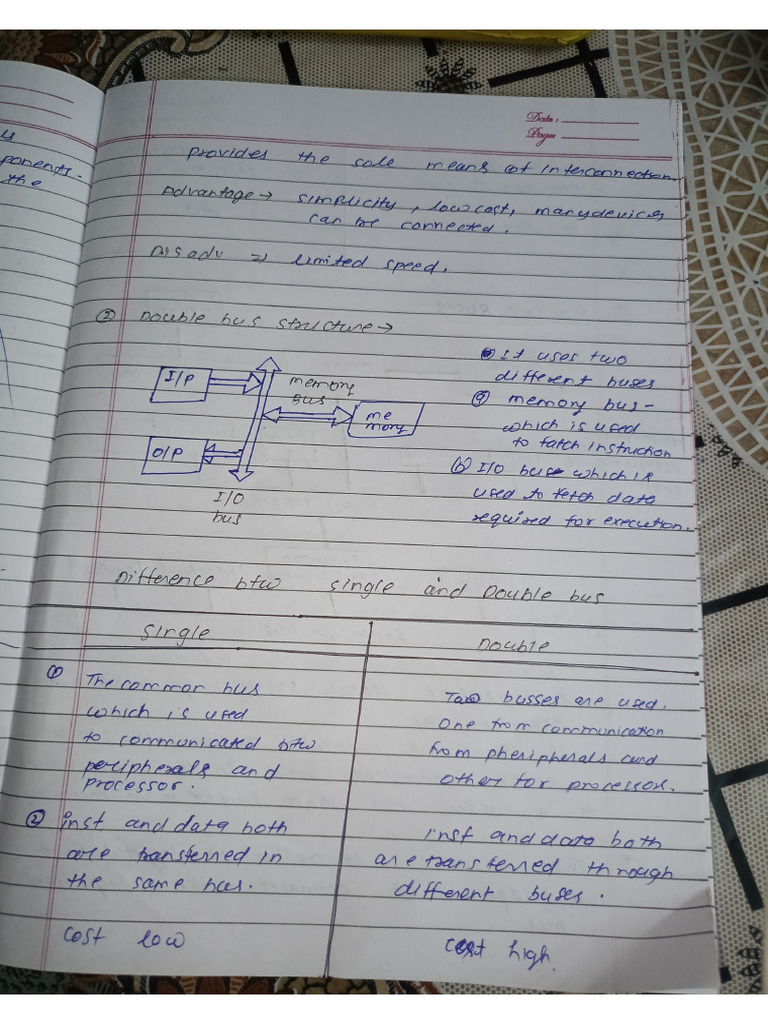 Date:
Page:
u
ponents.
the
provides the sole means of interconnection.
Advantage → simplicity, low cost, many devices
can be connected.
Disadv ⇒ limited speed.
② Double bus structure →
I/P
memory
BUS
me
mory
O/P
I/O
bus
It uses two
different buses
ⓐ memory bus-
which is used
to fatch instruction
ⓑ I/O bus which is
used to fetch data
required for execution.
Difference btw single and Double bus
Single
Double
① The common bus
which is used
to communicated btw
peripherals and
processor.
Two busses are used.
One from communication
from pheripherals and
other for processor.
② inst and data both
are transferred in
the same bus.
inst and data both
are transferred through
different buses.
cost low
cost high.